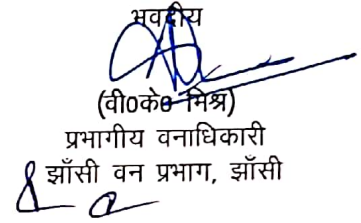 भवदीय
(वी0के0 मिश्र)
प्रभागीय वनाधिकारी
झाँसी वन प्रभाग, झाँसी